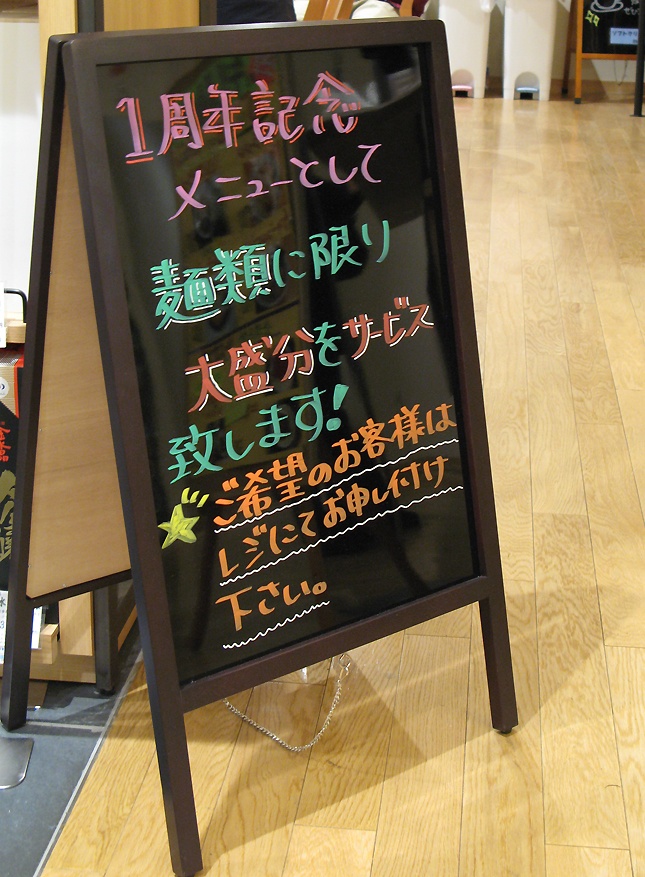 1周年記念
メニューとして
麺類に限り
大盛分をサービス
致します!
ご希望のお客様は
レジにてお申し付け
下さい。